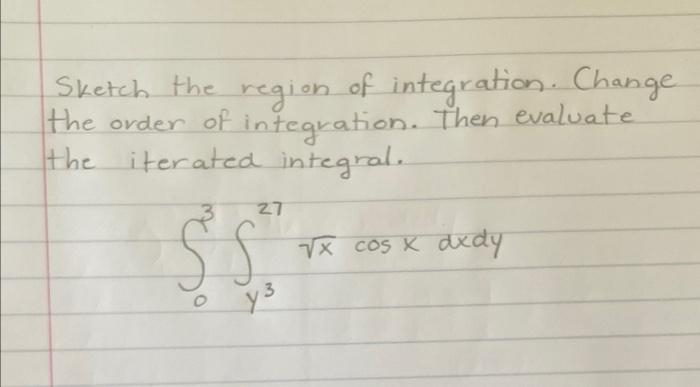 Sketch the region of integration. Change
the order of integration. Then evaluate
the iterated integral.
∫₀³ ∫_{y³}^{27} √x cos x dxdy